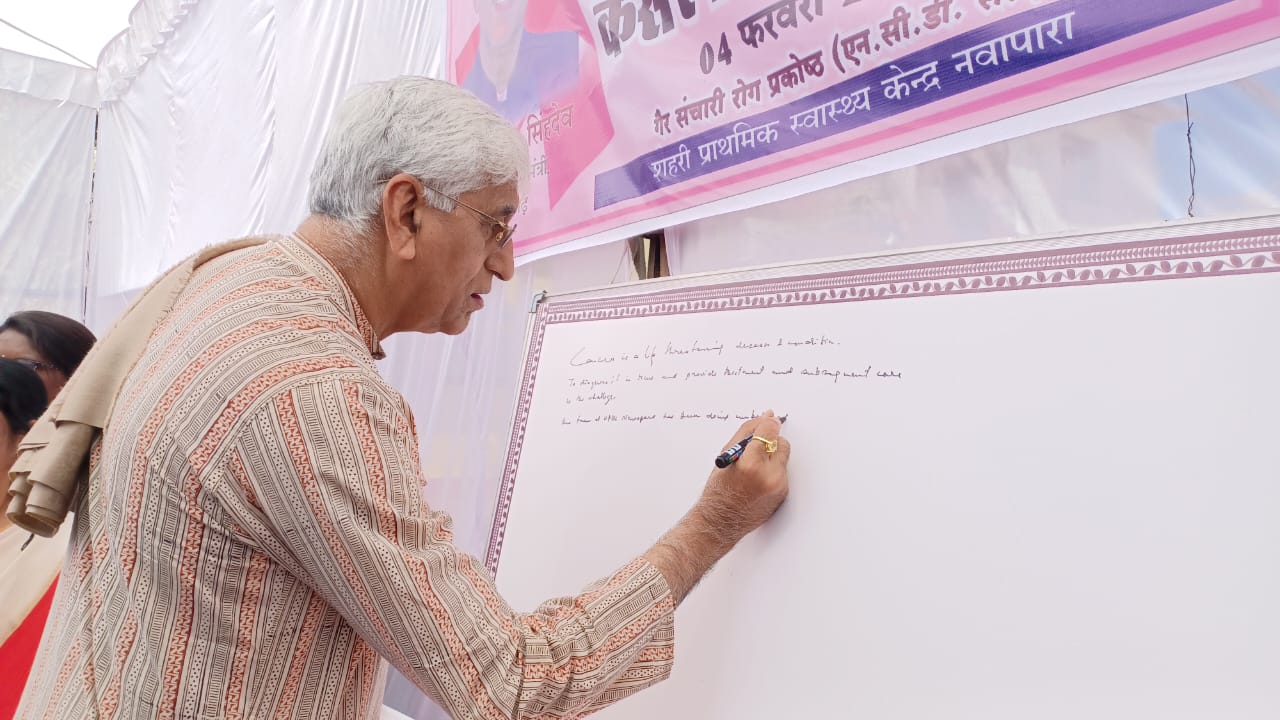 04 फरवरी
गैर संचारी रोग प्रकोष्ठ (एन.सी.डी.
शहरी प्राथमिक स्वास्थ्य केन्द्र नवापारा
सिंहदेव
Cancer is a life threatening disease & condition.
To diagnose it in time and provide treatment and subsequent care
is the challenge
the team at has been doing